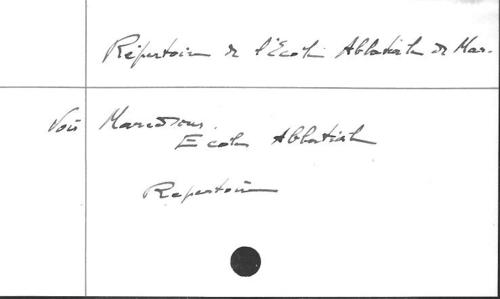 Répertoire de l'École Abbatiale de Mar.
Voir Maredsous.
École Abbatiale
Repertoire